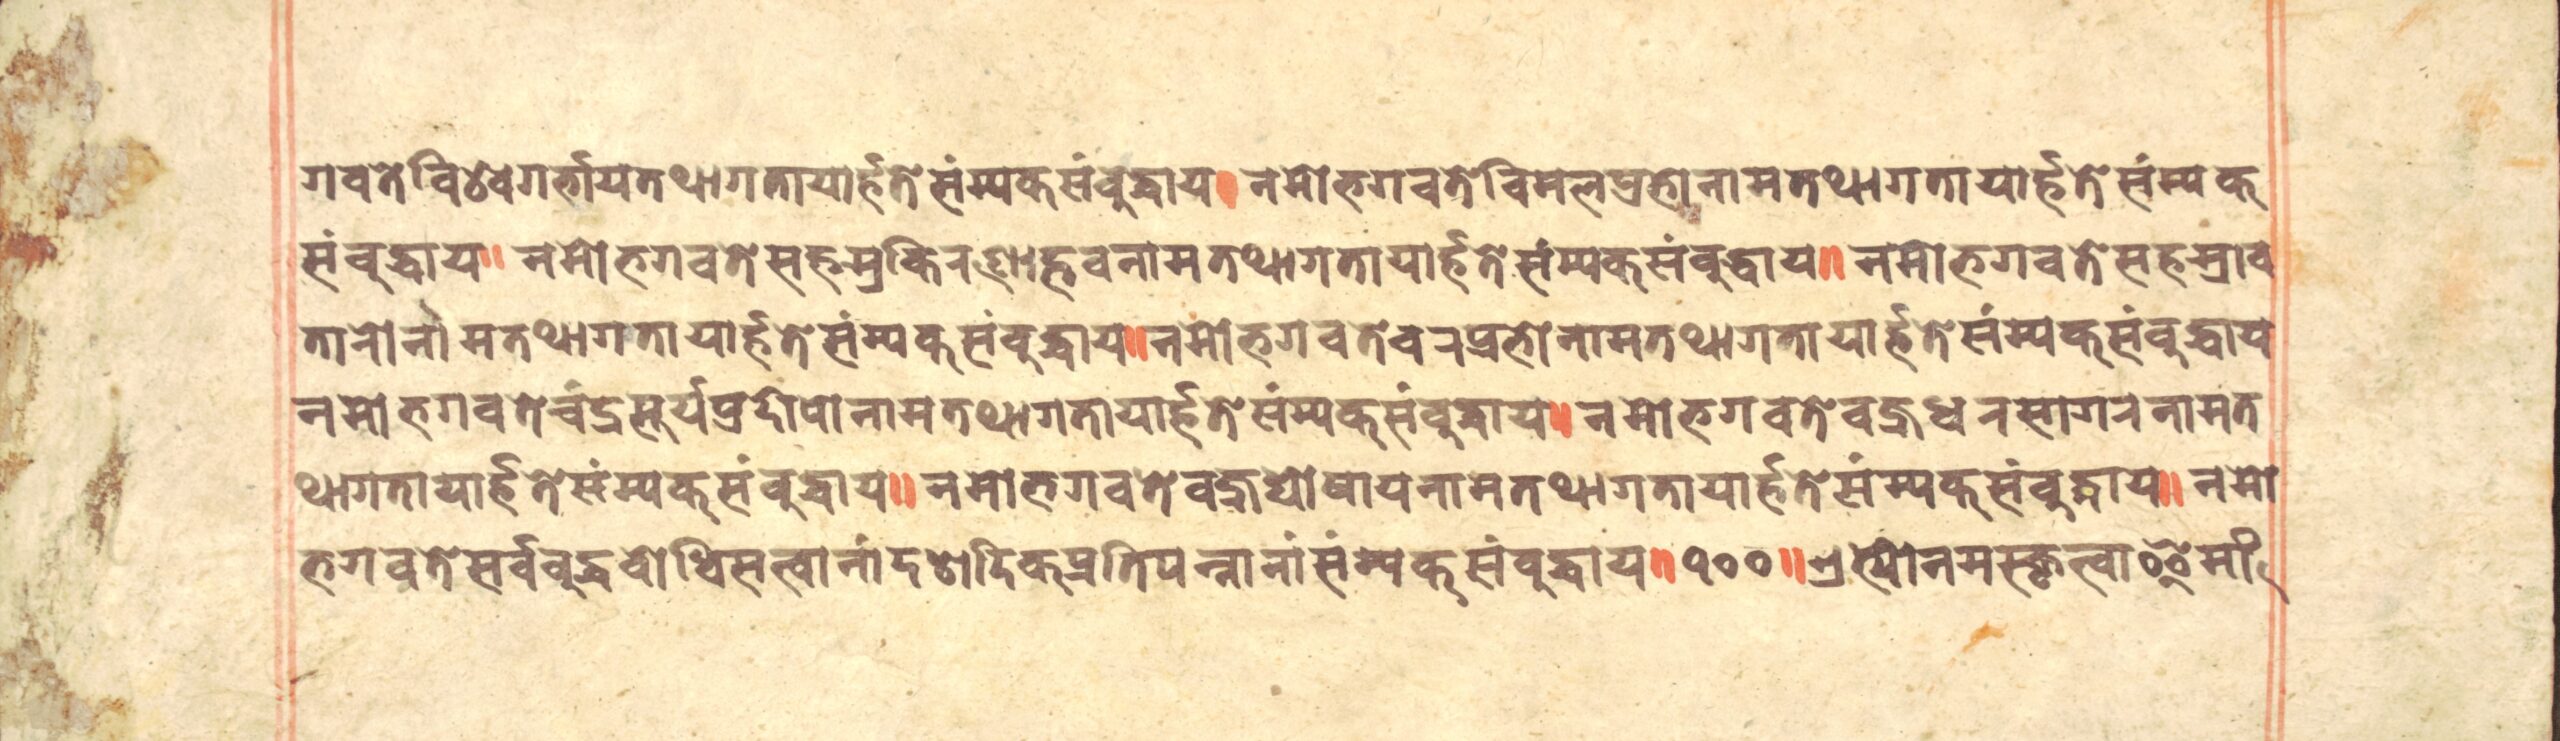 गवतेविश्वगर्भायतथागतायार्हतेसंम्यकसंबुद्धाय। नमोभगवतेविमलप्रभोनामतथागतायार्हतेसंम्यक्
संबुद्धाय॥ नमोभगवतेसहस्रकिरणोद्भवनामतथागतायार्हतेसंम्यक्संबुद्धाय॥ नमोभगवतेसहस्राव
तारोर्नामतथागतायार्हतेसंम्यक्संबुद्धाय॥नमोभगवतेवरप्रभोनामतथागतायार्हतेसंम्यक्संबुद्धाय
नमोभगवतेचंद्रसूर्यप्रदीपोनामतथागतायार्हतेसंम्यक्संबुद्धाय॥ नमोभगवतेवज्रधरसागरनामत
थागतायार्हतेसंम्यक्संबुद्धाय॥ नमोभगवतेवज्रघोषायनामतथागतायार्हतेसंम्यक्संबुद्धाय॥ नमो
भगवतेसर्वबुद्धबोधिसत्वानांदशदिक्प्रतिपन्नानांसंम्यक्संबुद्धाय॥ १०० ॥ नमस्कृत्वा